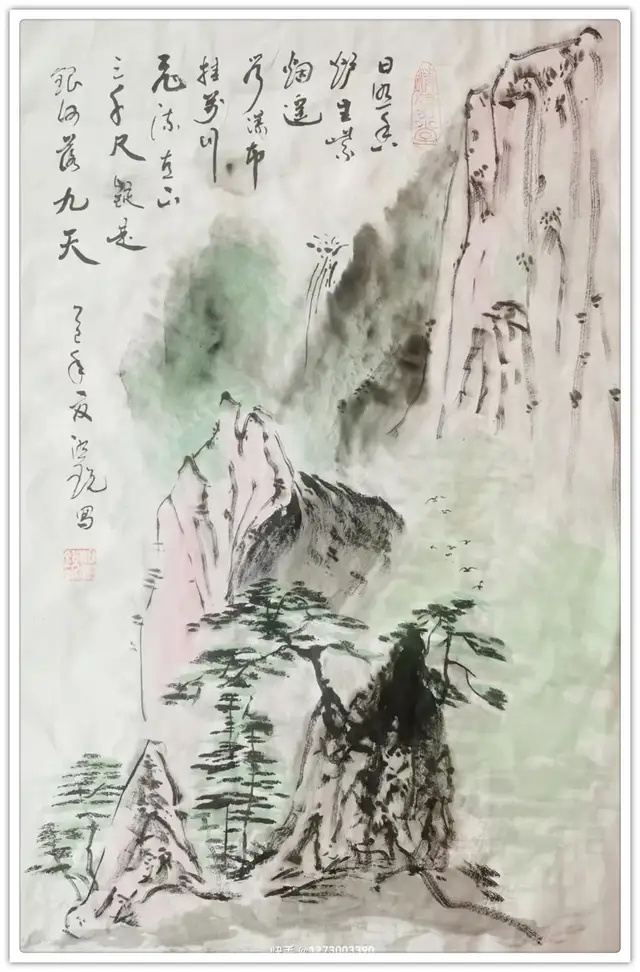 日照香
炉生紫
烟遥
看瀑布
挂前川
飛流直下
三千尺疑是
銀河落九天
年夏
快手 @1273003390